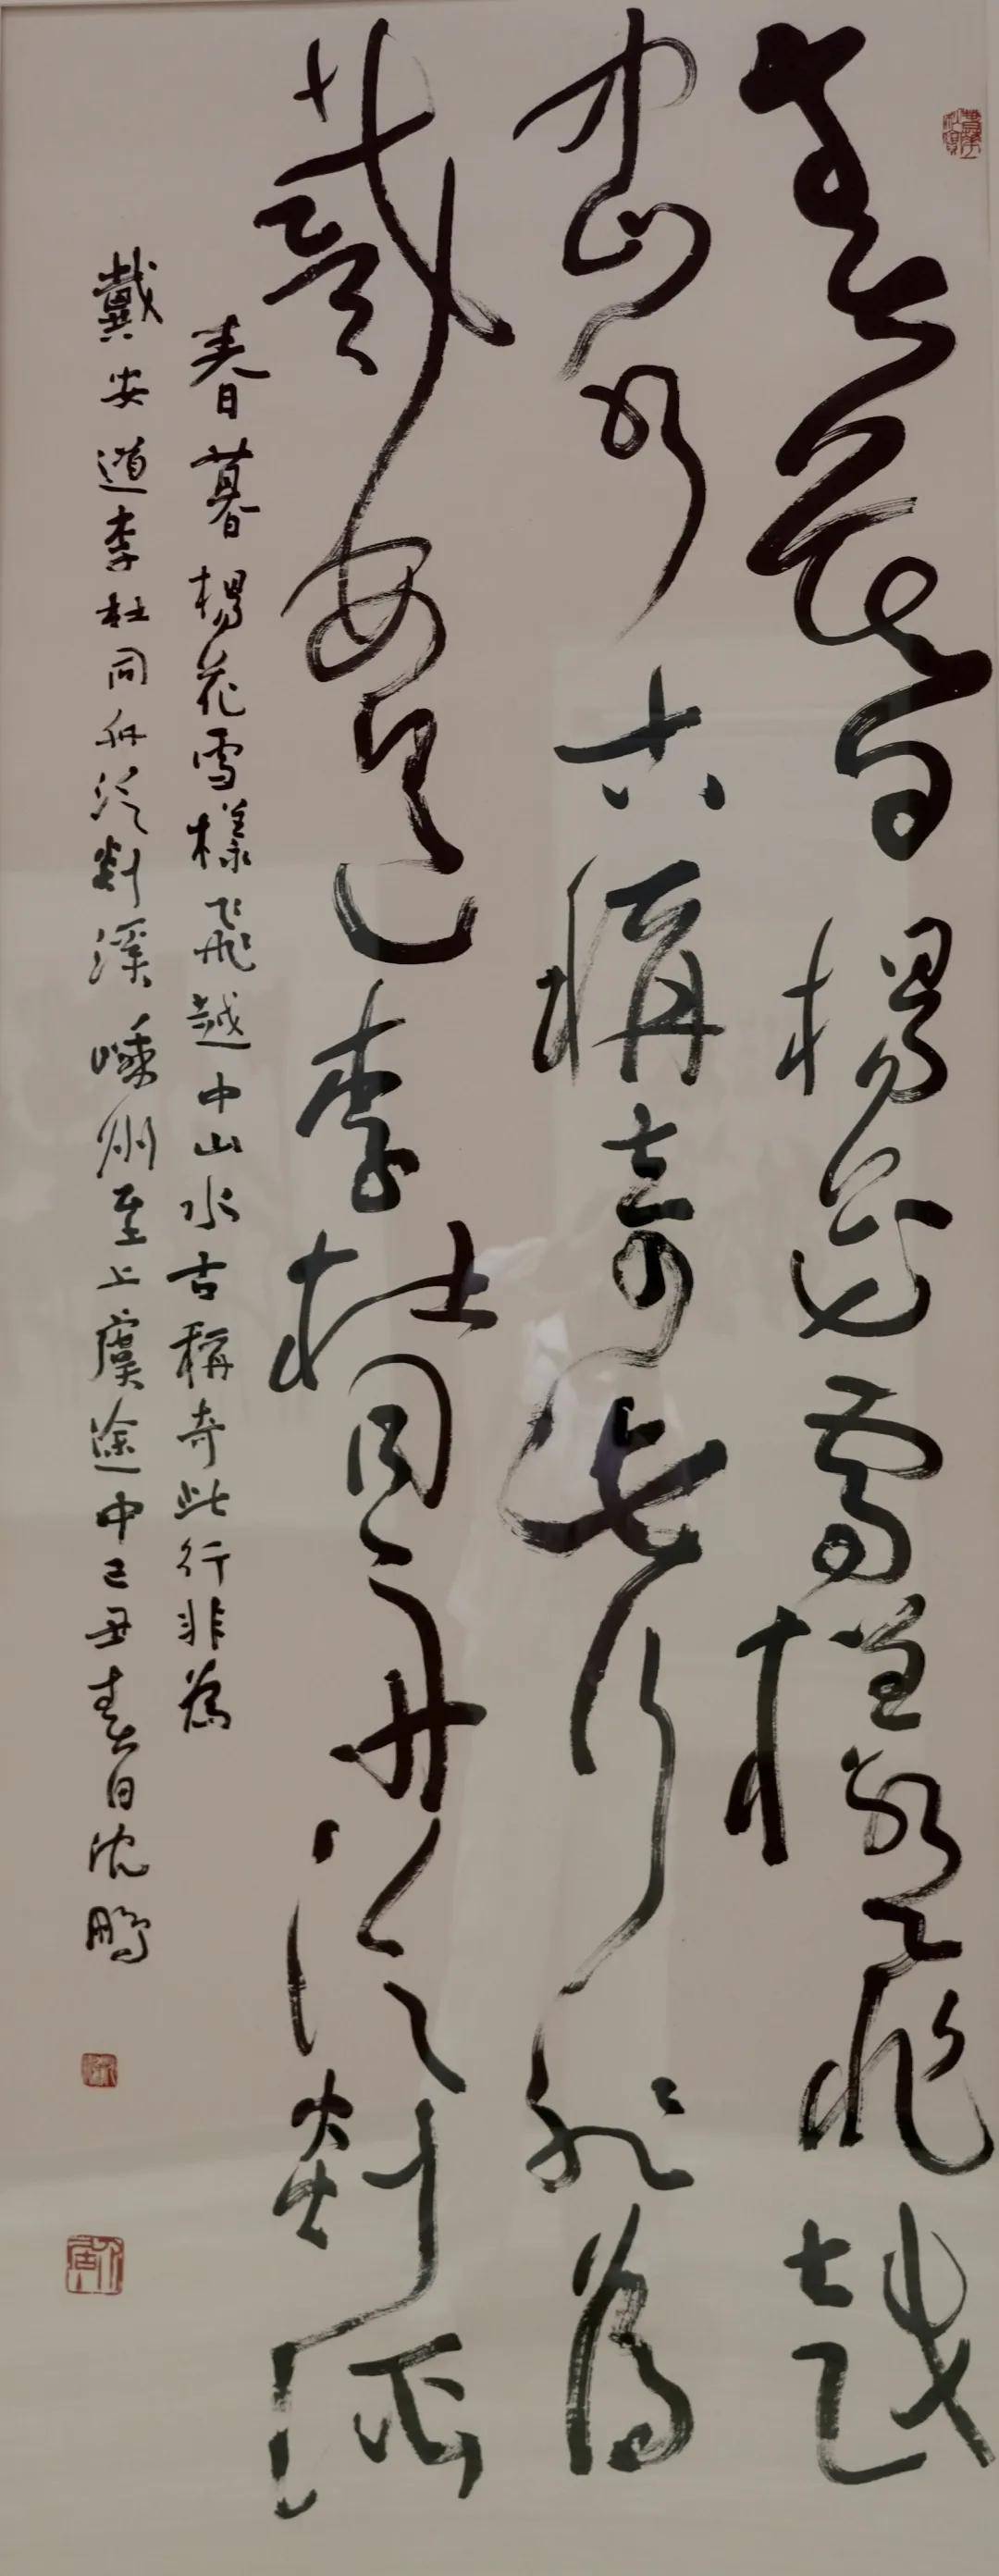 春暮楊花雪樣飛越
中山水古稱奇此行非為
戴安道李杜同舟泛剡溪
春暮楊花雪樣飛越中山水古稱奇此行非為
戴安道李杜同舟泛剡溪嵊州至上虞途中己丑春日沈鵬